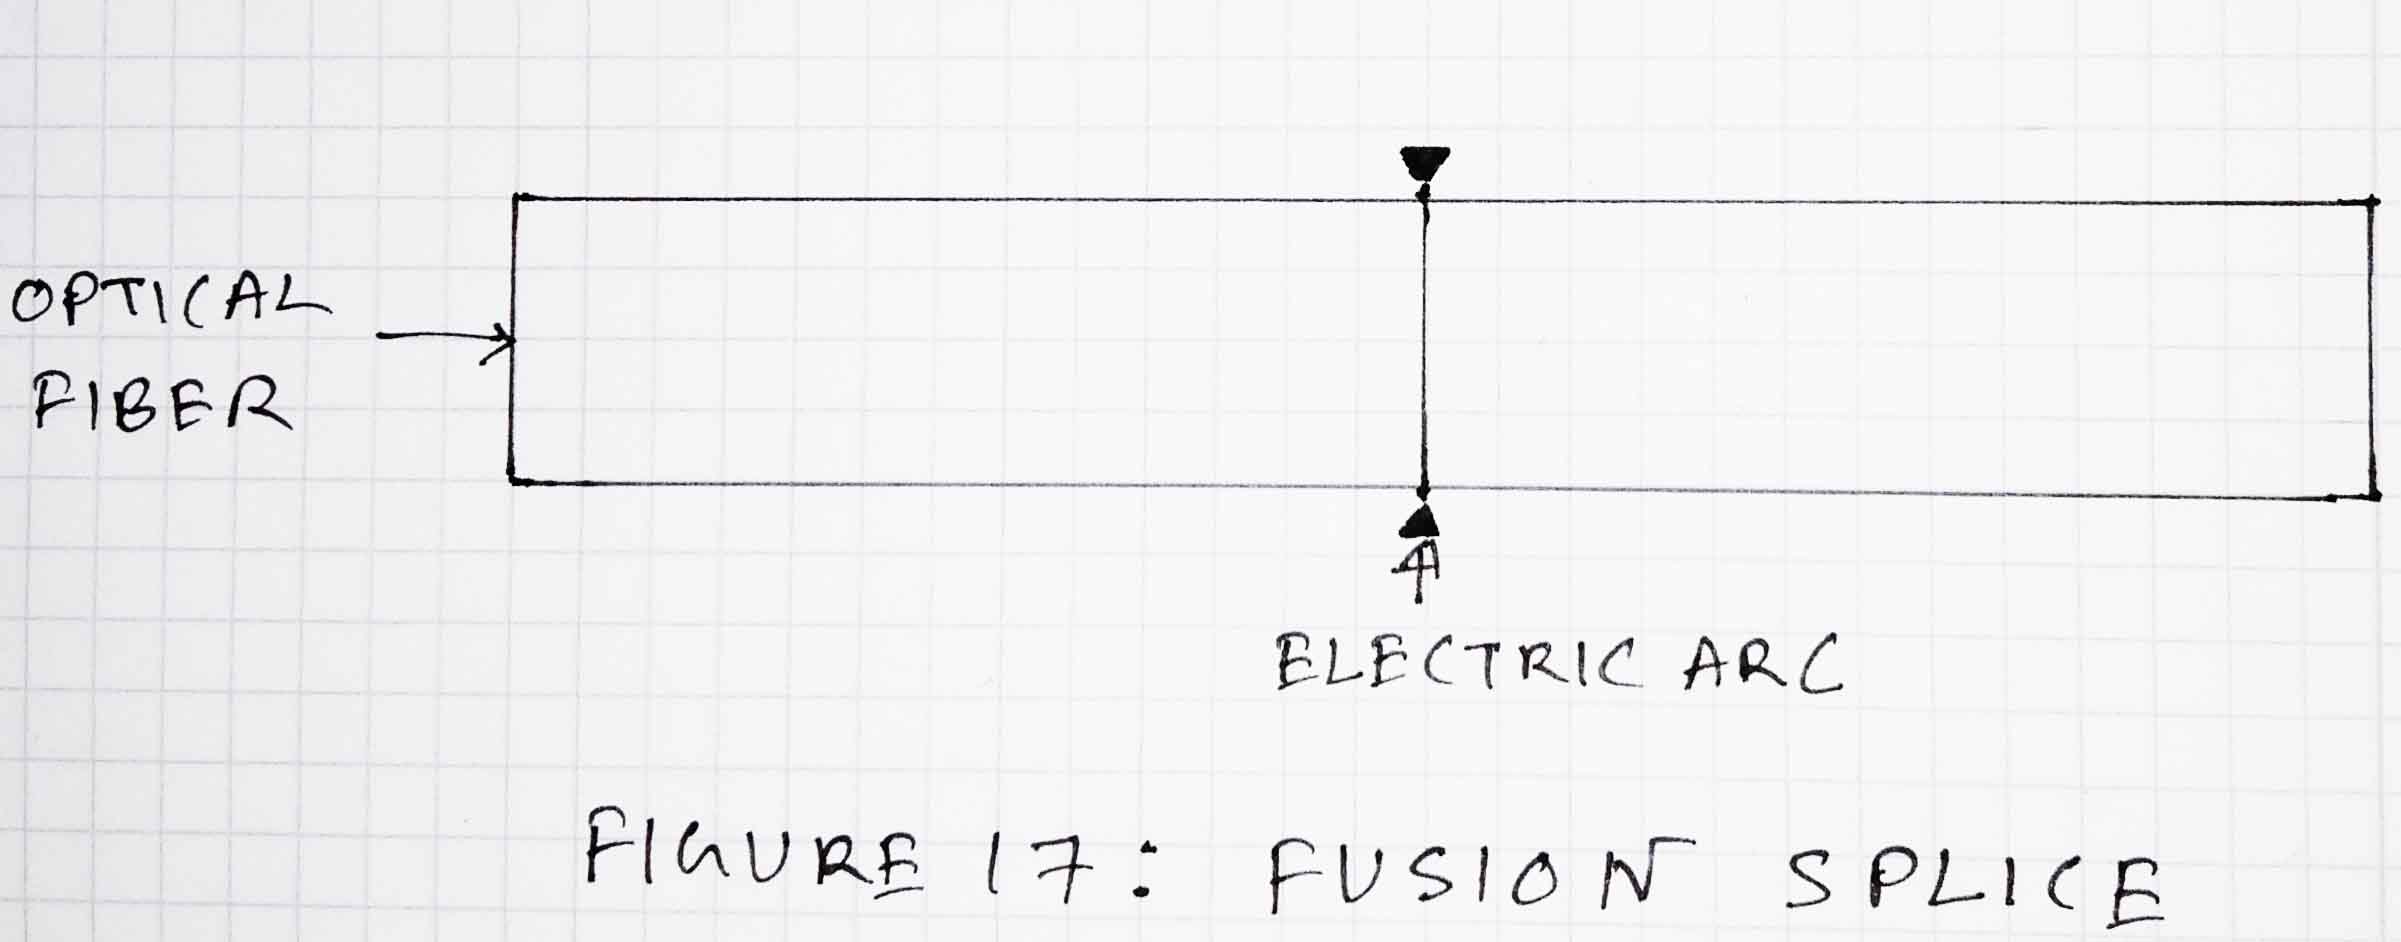 OPTICAL
FIBER
ELECTRIC ARC
FIGURE 17: FUSION SPLICE